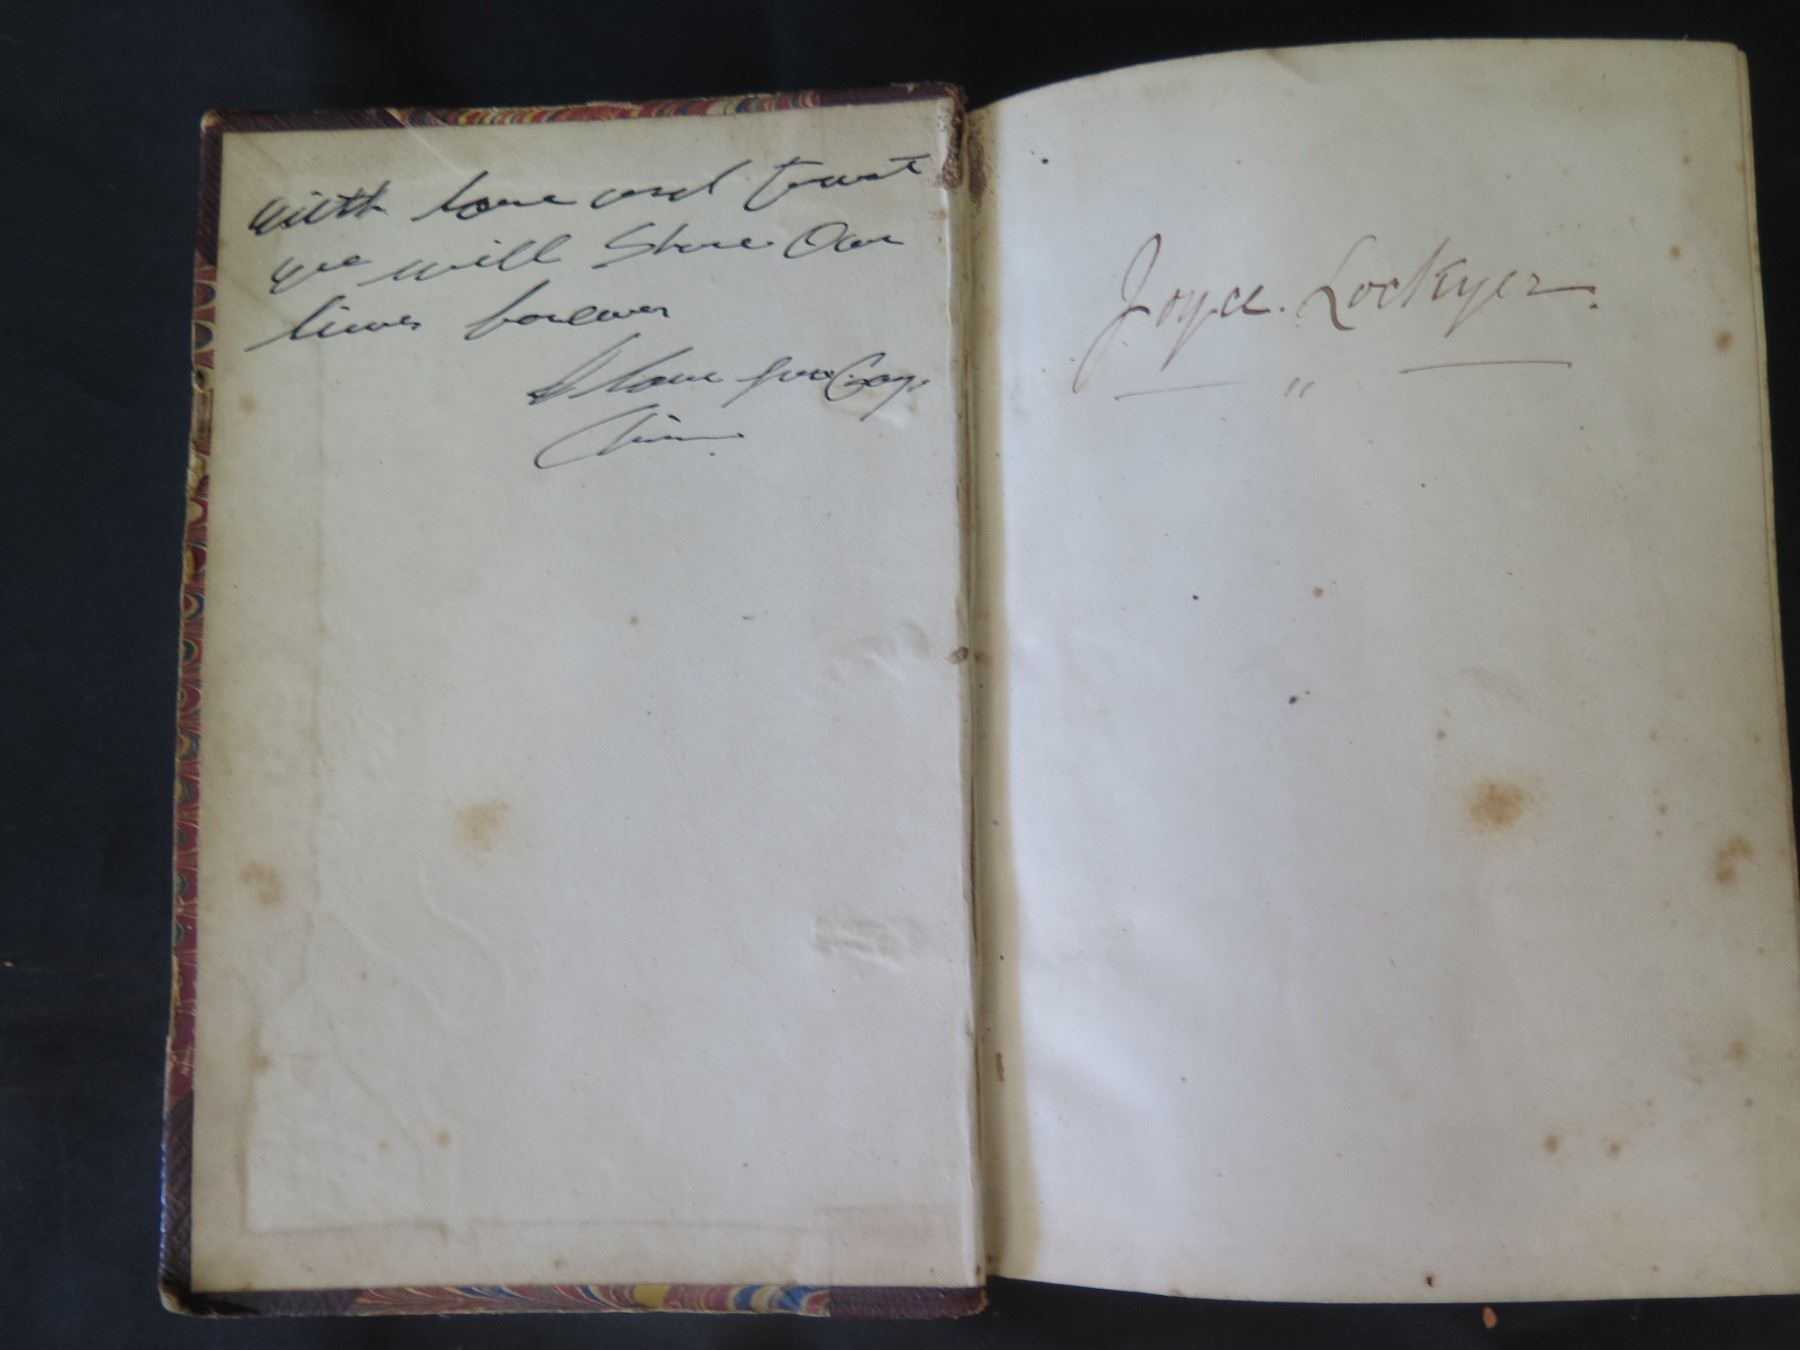 with love and trust
we will Share Our
lives forever
I love you Gay.
Joyce. Lockyer.
"